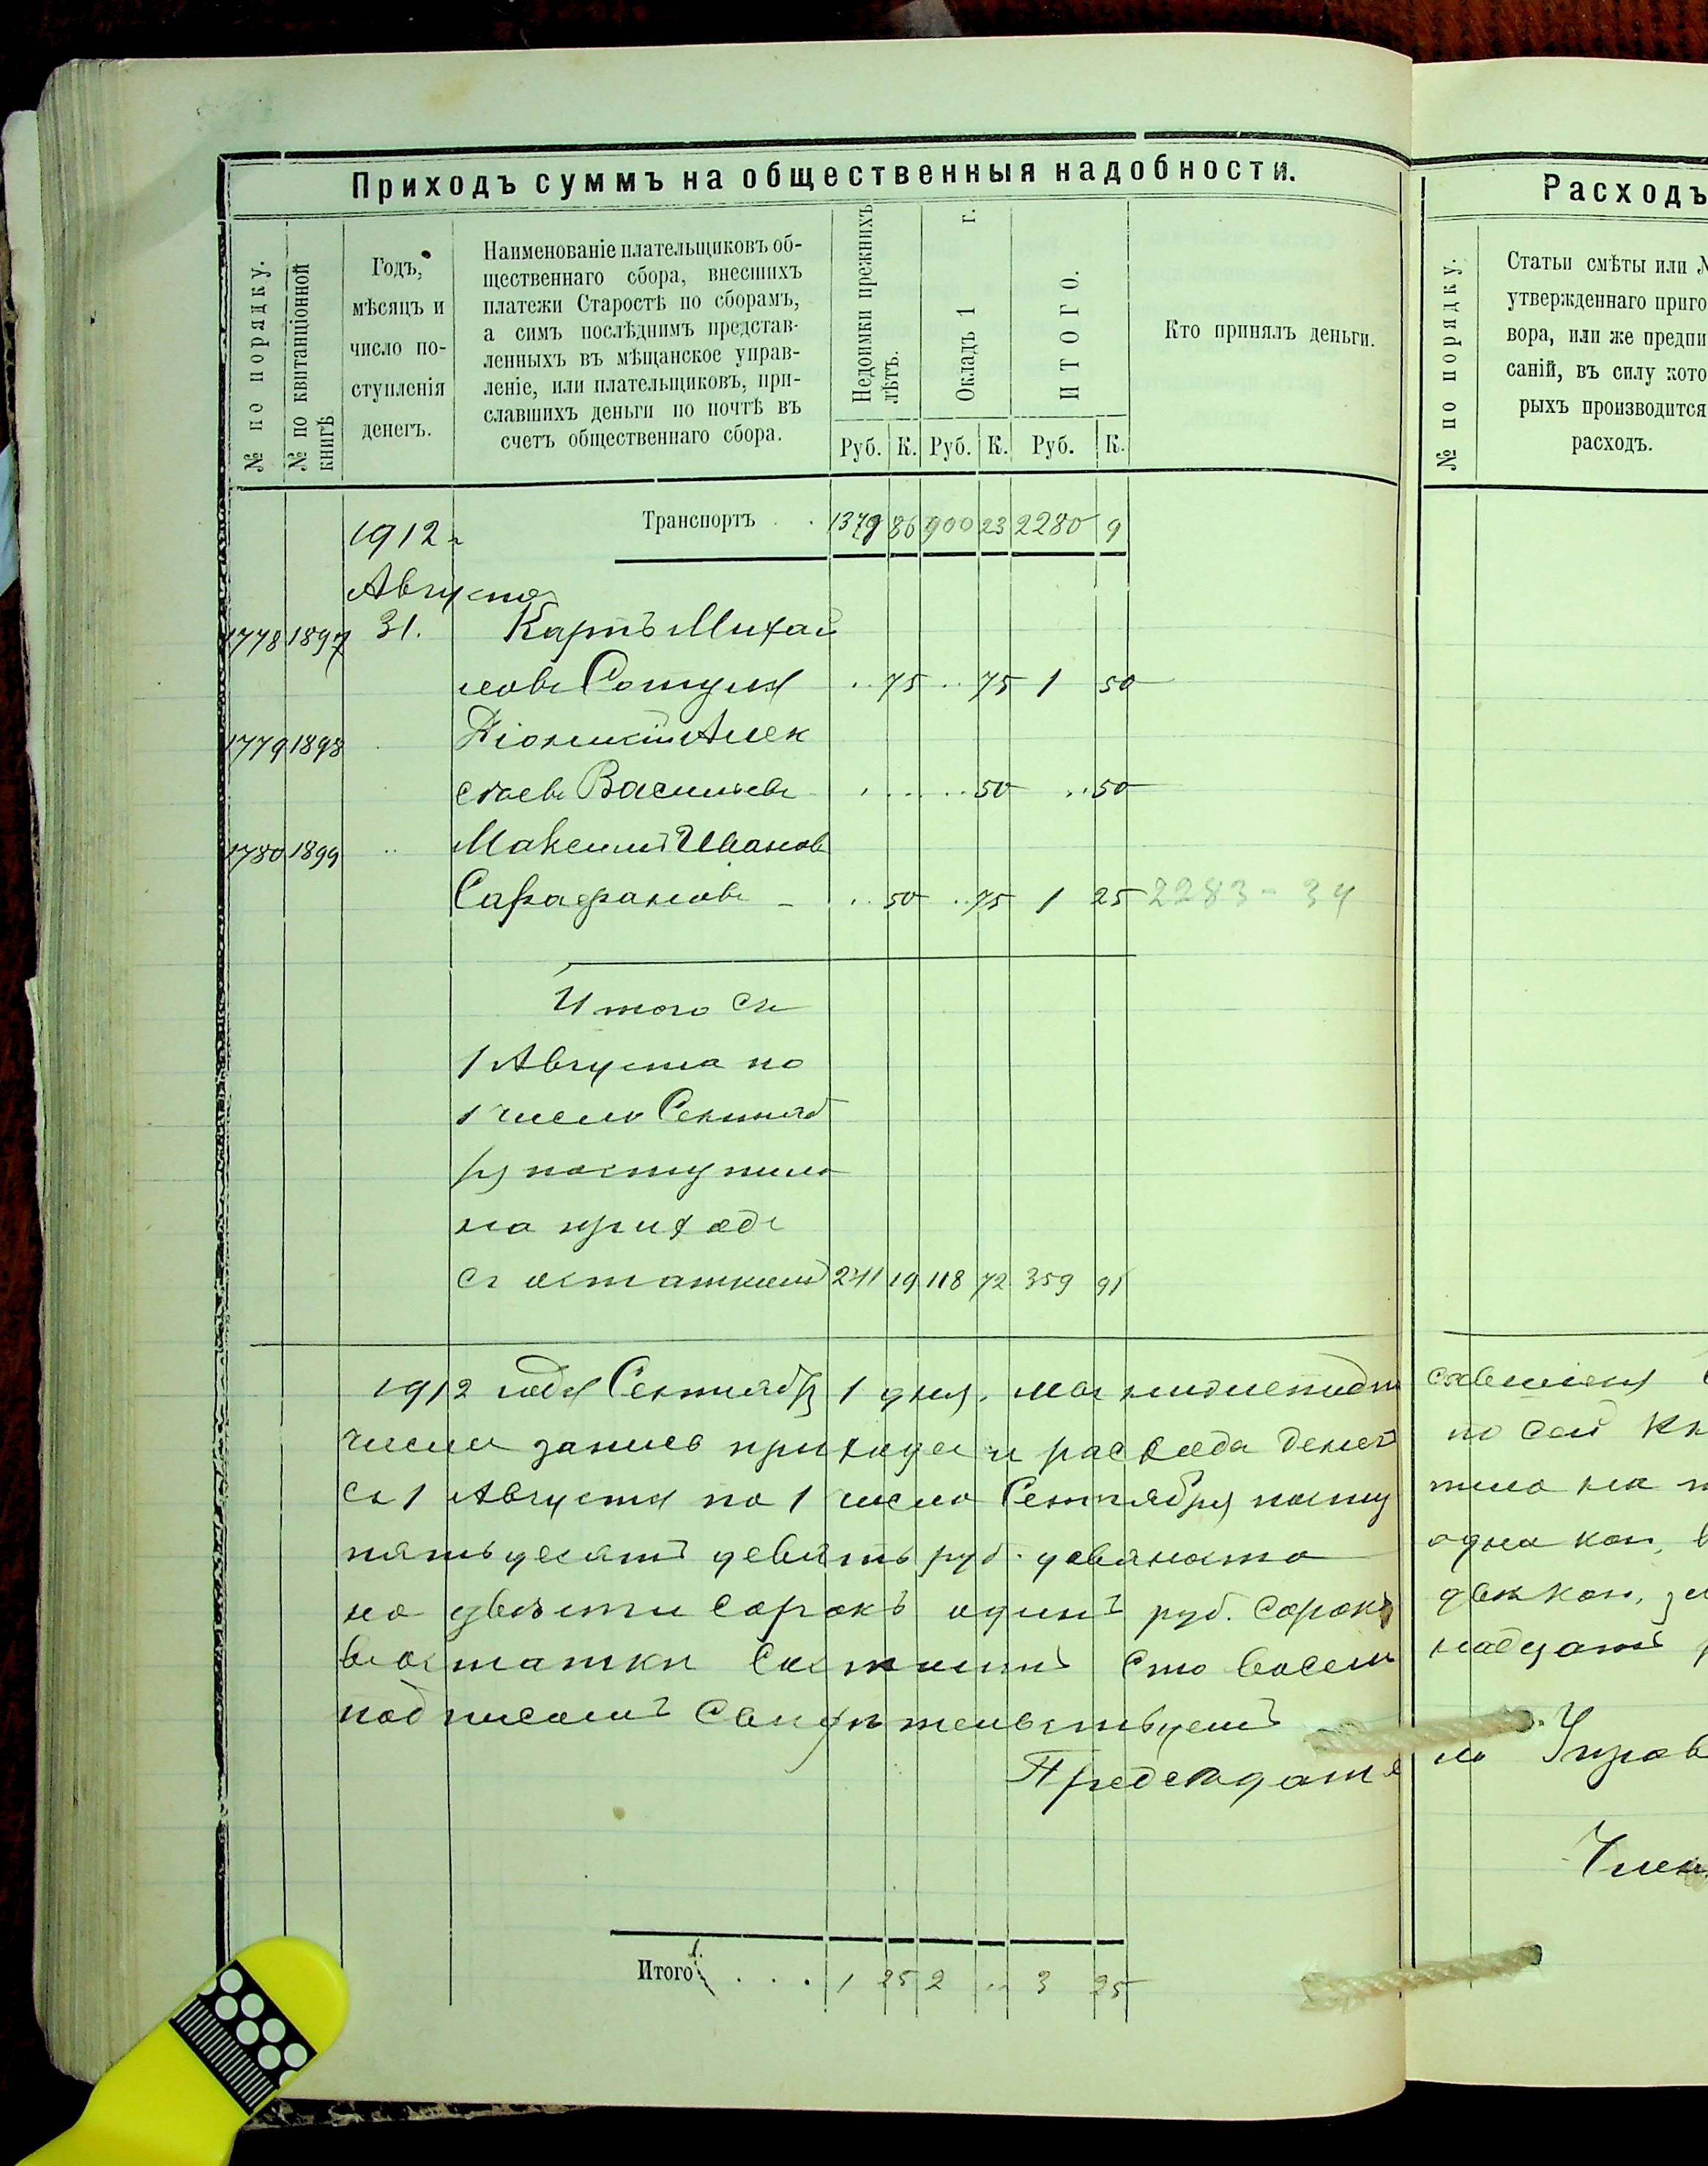 Приходъ суммъ на общественныя надобности.
№ по порядку.
№ по квитанціонной книгѣ
Годъ, мѣсяцъ и число поступленія денегъ.
Наименованіе плательщиковъ об-
щественнаго сбора, внесшихъ
платежи Старостѣ по сборамъ,
а симъ послѣднимъ представ-
ленныхъ въ мѣщанское управ-
леніе, или плательщиковъ, при-
славшихъ деньги по почтѣ въ
счетъ общественнаго сбора.
Недоимки прежнихъ лѣтъ.
Окладъ 1 г.
ИТОГО.
Кто принялъ деньги.
Руб. К. Руб. К. Руб. К.
1912 г Транспортъ 1379 86 900 23 2280 9
Августа
1778 1897 31. Карпъ Михай
ловъ 75 75 1 50
1779 1898 Діонисій Алек
сѣевъ Васильевъ 50 50
1780 1899 Максимъ Ивановъ
Сарафановъ 50 75 1 25 2283 - 34
Итого съ
1 Августа по
1 число Сентяб
ря поступило
на приходъ
съ остаткомъ 241 19 118 72 359 91
1912 года Сентября 1 дня, мы нижеподпи
записъ прихода и расхода денегъ
съ 1 Августа по 1 число Сентября посту
пятьдесятъ девять руб. девяносто
но двѣсти сорокъ одинъ руб. сорокъ
въ остатки состоитъ сто восем
подписомъ свидѣтельствуемъ
Предсѣдате
Итого 1 25 2 .. 3 25
Расходъ
№ по порядку.
Статьи смѣты или №
утвержденнаго приго
вора, или же предпи
саній, въ силу кото
рыхъ производится
расходъ.
по сей кн
пило на п
одна коп. в
двѣ коп.
надцать
Управ
Член